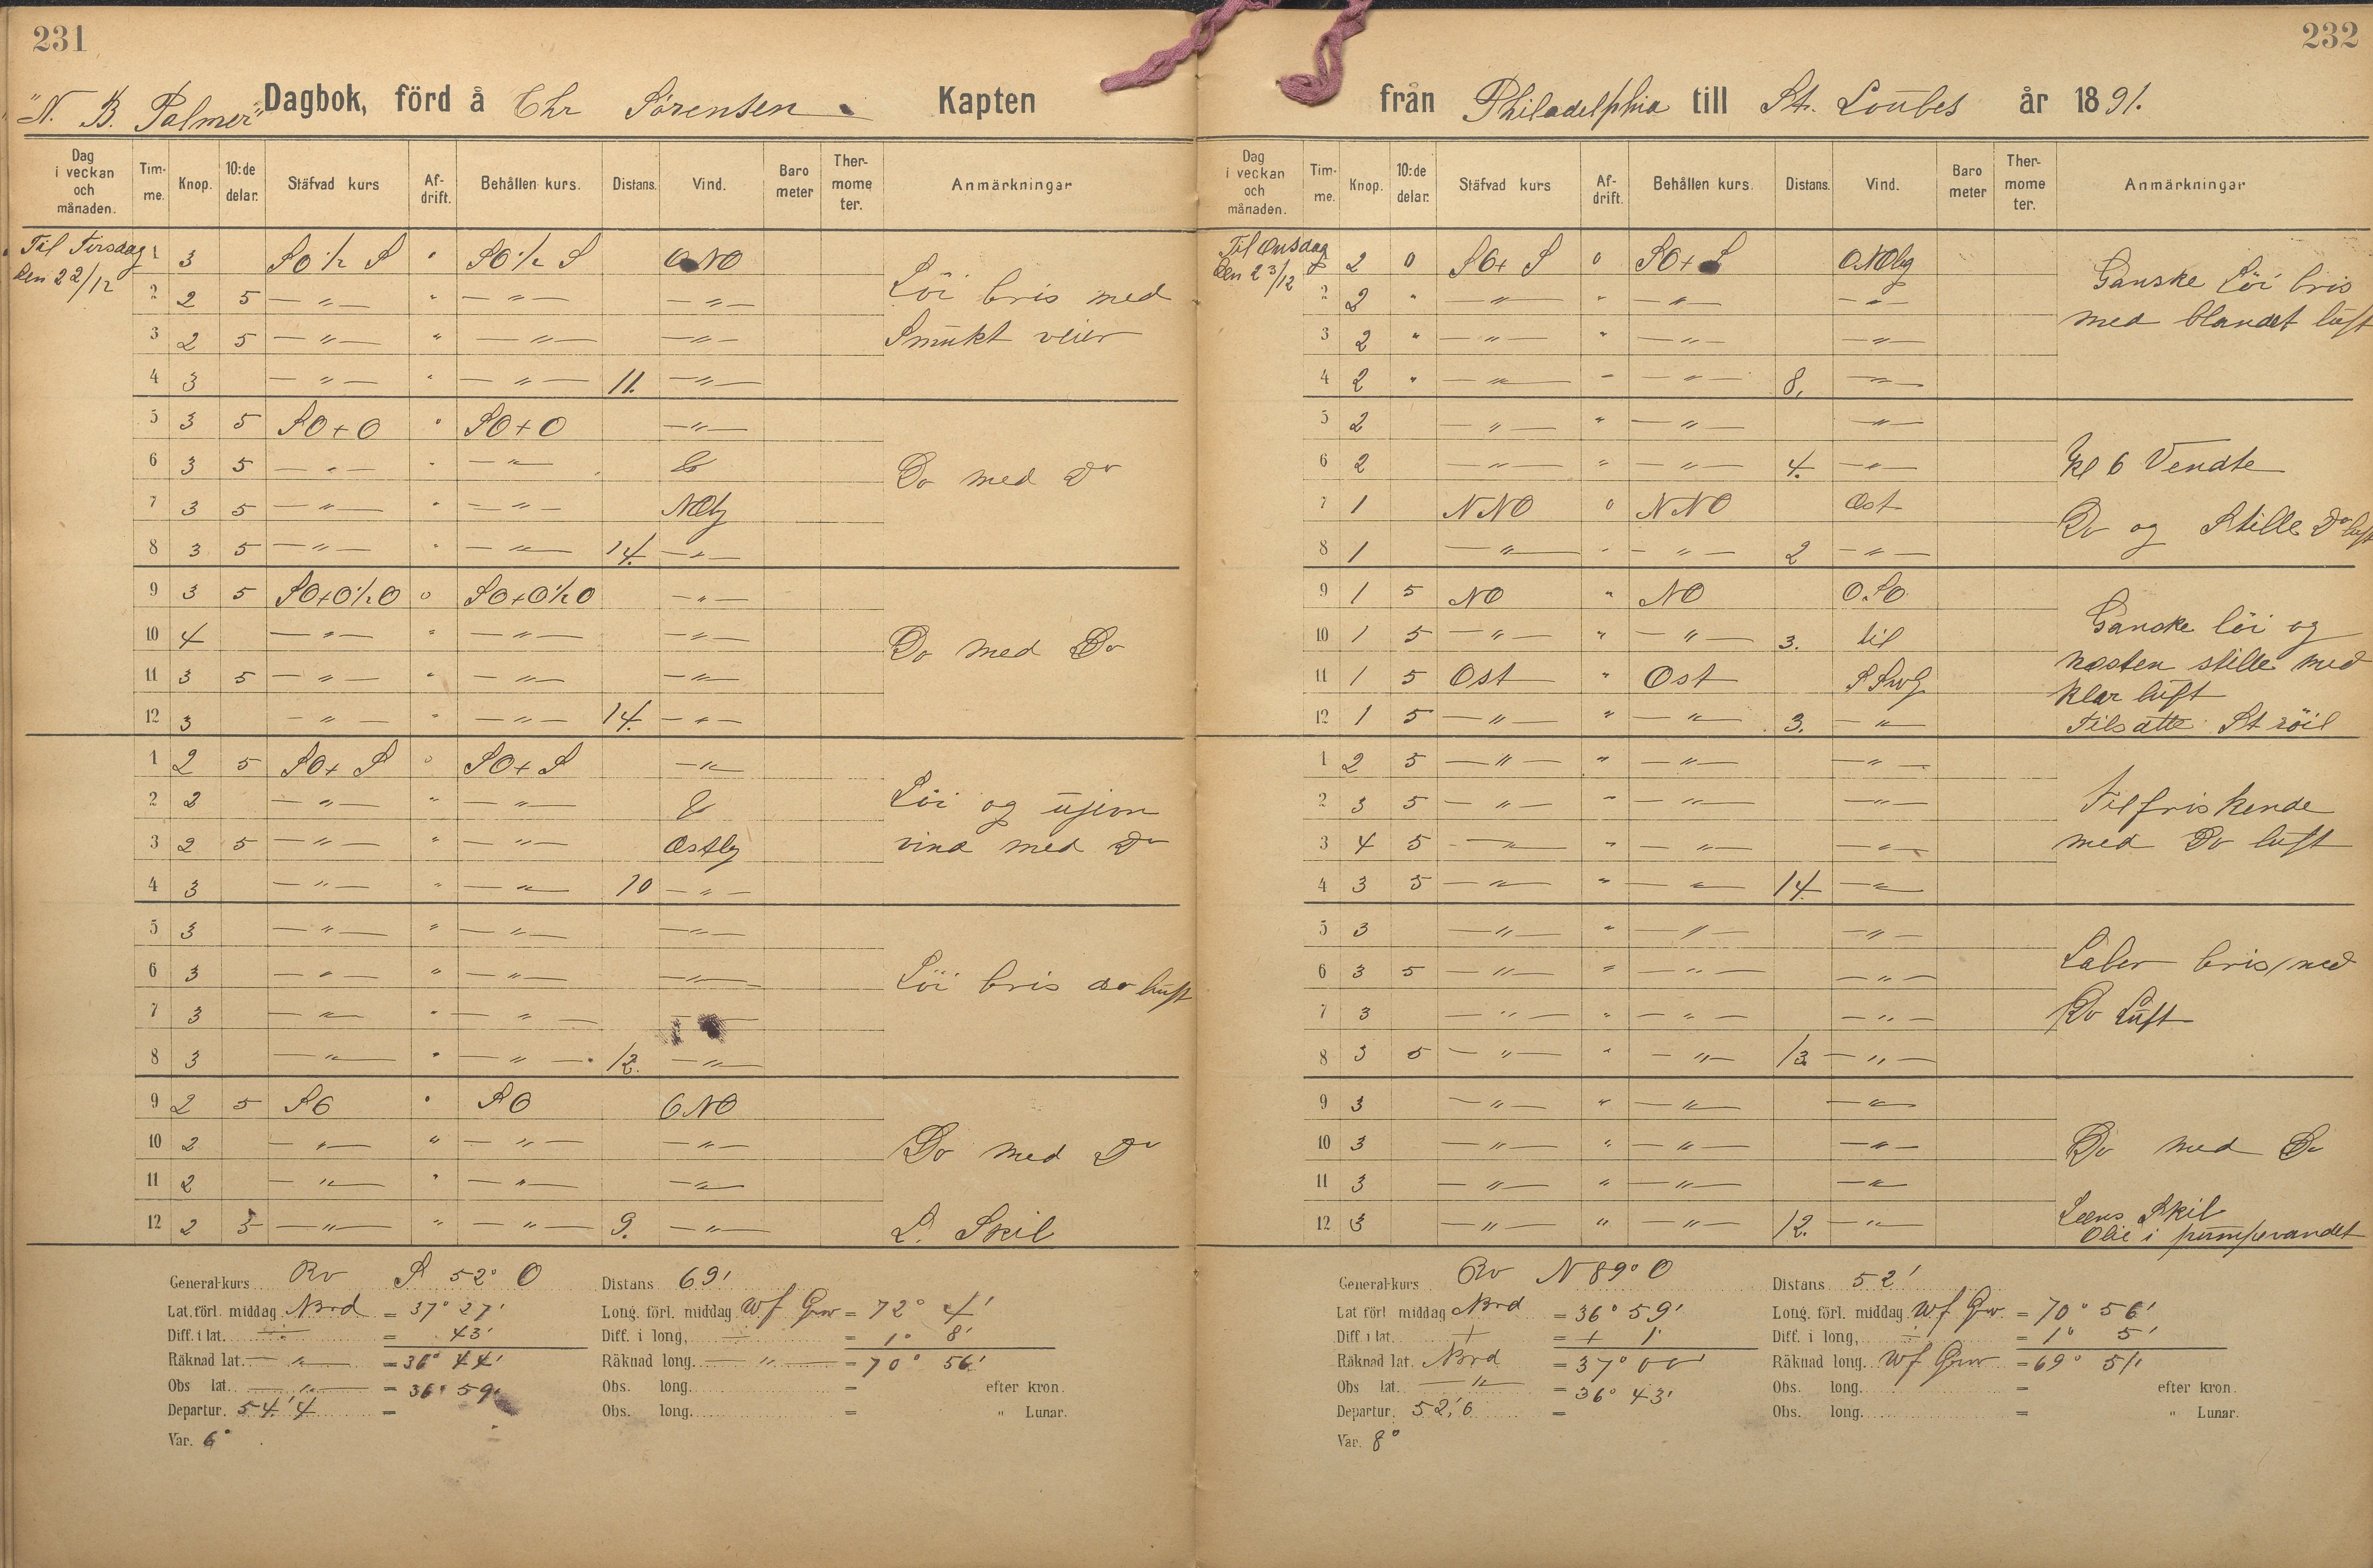 231
232
"N. B. Palmer" Dagbok, förd å Chr Sörensen Kapten
från Philadelphia till St. Loubes år 1891.
Dag i veckan och månaden. Timme. Knop. 10:de delar. Stäfvad kurs Afdrift. Behållen kurs. Distans. Vind. Barometer Thermometer. Anmärkningar
Til Tirsdag den 22/12
1 3 SO ½ S " SO ½ S ONO
2 2 5 — " — " — " — — " — Löi bris med
3 2 5 — " — " — " — — " — Smukt veier
4 3 — " — " — " — 11. — " —
5 3 5 SO+O " SO+O — " —
6 3 5 — " — " — " — & Do med Do
7 3 5 — " — " — " — NOly
8 3 5 — " — " — " — 14. — " —
9 3 5 SO+O½O 0 SO+O½O — " —
10 4 — " — " — " — — " — Do med Do
11 3 5 — " — " — " — — " —
12 3 — " — " — " — 14. — " —
1 2 5 SO+ S 0 SO+ S — " —
2 2 — " — " — " — & Löi og ujevn
3 2 5 — " — " — " — Ostly vind med Do
4 3 — " — " — " — 10 — " —
5 3 — " — " — " — — " —
6 3 — " — " — " — — " — Löi bris do luft
7 3 — " — " — " — — " —
8 3 — " — " — " — 12. — " —
9 2 5 SO " SO ONO
10 2 — " — " — " — — " — Do med Do
11 2 — " — " — " — — " —
12 2 5 — " — " — " — 9. — " — L. Skib
Generalkurs Rv S 52° O Distans 69'
Lat. förl. middag Nord = 37° 27' Long. förl. middag Wf Grw = 72° 4'
Diff. i lat. ÷ = 43' Diff. i long, ÷ = 1° 8'
Räknad lat. — " — = 36° 44' Räknad long. — " — = 70° 56'
Obs lat. — " — = 36° 59' Obs. long. = efter kron.
Departur. 54,'4 = Obs. long. = " Lunar.
Var. 6°
Dag i veckan och månaden. Timme. Knop. 10:de delar. Stäfvad kurs Afdrift. Behållen kurs. Distans. Vind. Barometer Thermometer. Anmärkningar
Til Onsdag den 23/12
1 2 0 SO+ S 0 SO+ S ONOly Ganske Löi bris
2 2 " — " — " — " — — " — med blandet luft
3 2 " — " — " — " — — " —
4 2 " — " — " — " — 8. — " —
5 2 — " — " — " — — " —
6 2 — " — " — " — 4. — " — Kl 6 Vendte
7 1 NNO 0 NNO Ost Do og Stille Do luft
8 1 — " — " — " — 2 — " —
9 1 5 NO " NO O.SO Ganske löi og
10 1 5 — " — " — " — 3. til næsten stille med
11 1 5 Ost " Ost SSW klar luft
12 1 5 — " — " — " — 3. — " — Tilsatte St röil
1 2 5 — " — " — " — — " —
2 3 5 — " — " — " — — " — Tilfriskende
3 4 5 — " — " — " — — " — med Do luft
4 3 5 — " — " — " — 14. — " —
5 3 — " — " — " — — " —
6 3 5 — " — " — " — — " — Laber bris med
7 3 — " — " — " — — " — Do Luft
8 3 5 — " — " — " — 13. — " —
9 3 — " — " — " — — " —
10 3 — " — " — " — — " — Do med Do
11 3 — " — " — " — — " —
12 3 — " — " — " — 12. — " — Læns Skib
Olie i pumpevandet
Generalkurs Rv N 89° O Distans 52'
Lat förl middag Nord = 36° 59' Long. förl. middag Wf Grw. = 70° 56'
Diff i lat. + = + 1' Diff. i long, ÷ = 1° 5'
Räknad lat. Nord = 37° 00' Räknad long. Wf Grw = 69° 51'
Obs lat. — " — = 36° 43' Obs. long. = efter kron.
Departur. 52,'0 = Obs. long. = " Lunar.
Var. 8°